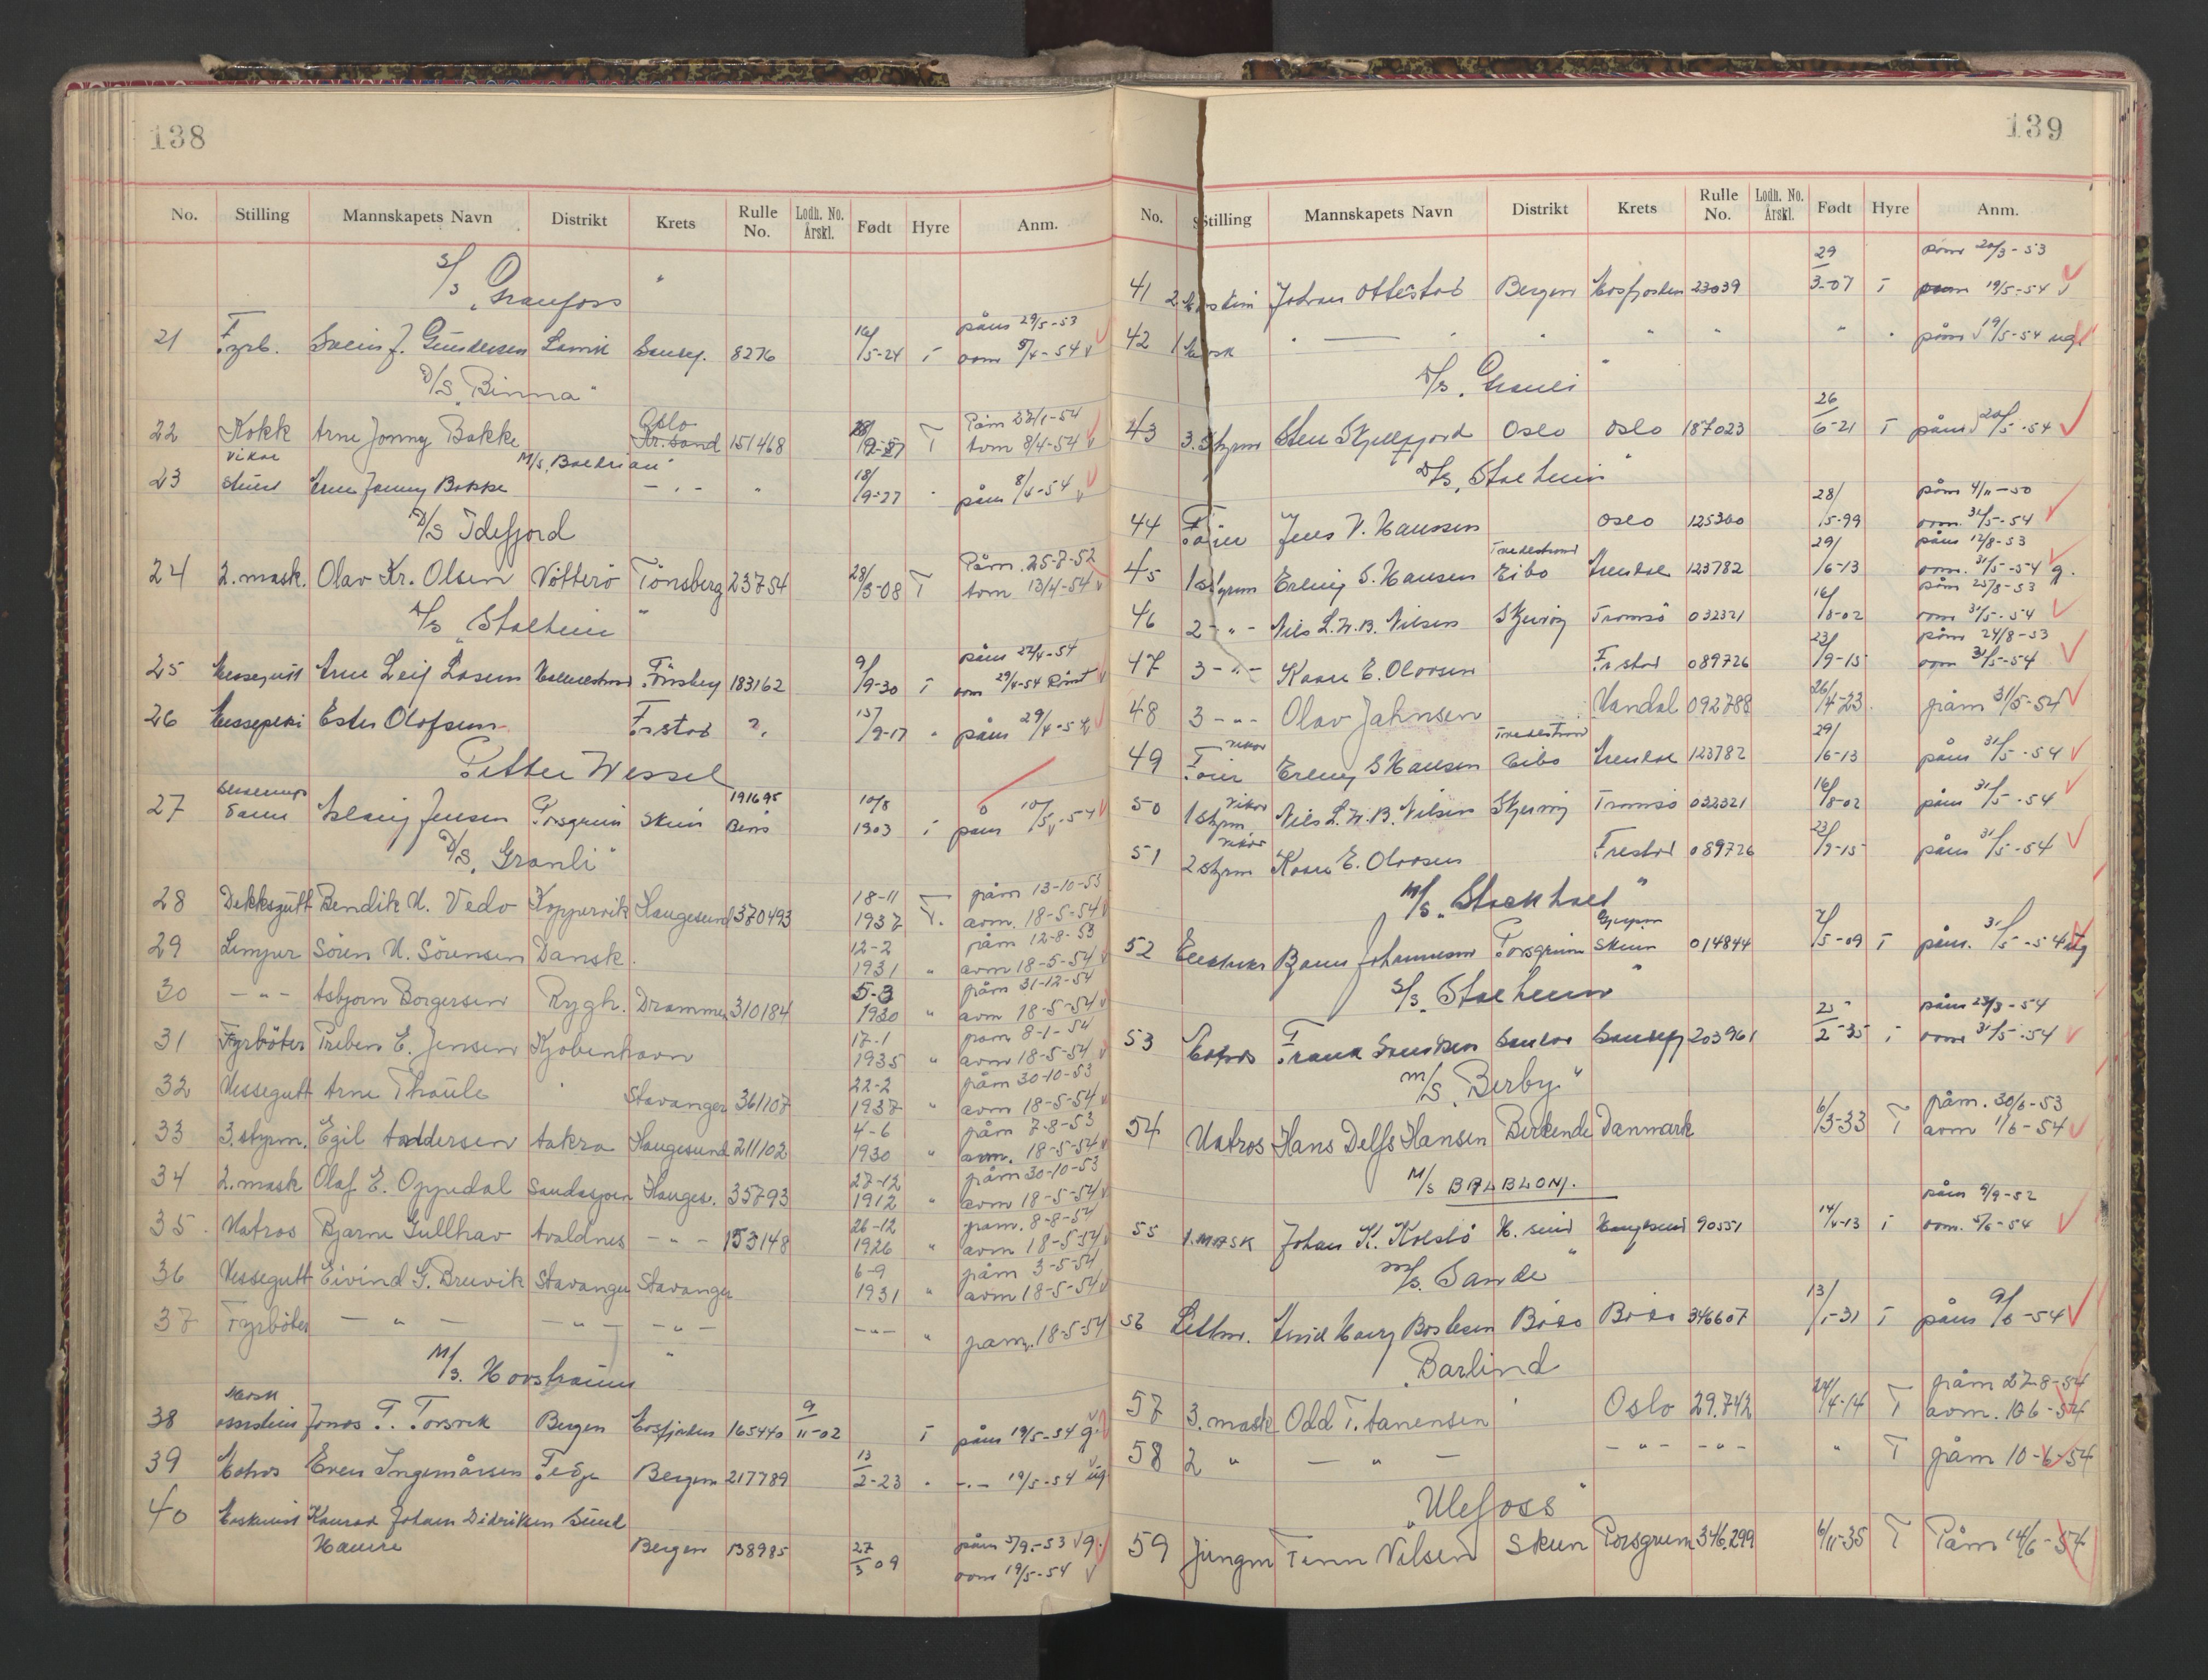 138
No. Stilling Mannskapets Navn Distrikt Krets Rulle No. Lodh. No. Årskl. Født Hyre Anm.
S/S „Granfoss"
påm 29/5-53
21 Fyrb. Svein J. Gundersen Larvik Sandef. 8276 16/5-24 T avm 5/4-54
D/S „Binna"
Oslo Påm 22/1-54
22 Kokk Arne Jonny Bakke Kr. sand 151468 T avm 8/4-54
vikar M/S „Baldrian"
23 Arne Jonny Bakke - " - " 18/9-27 " påm 8/4-54
D/S Idefjord
Påm. 25-8-52
24 2. mask. Olav Kr. Olsen Nötterö Tönsberg 23754 28/3-08 T avm 13/4-54
D/S „Stalheim"
påm 22/4-54
25 Messegutt Arne Leif Lösem Tönsberg 183162 9/9-30 T avm 29/4-54
26 Messepike Ester Olofsen Fr.stad 15/9-17 " påm 29/4-54
Petter Wessel
191695 10/8
27 Aslaug Jensen Porsgrunn Skien 1903 T påm 10/5-54
D/S „Granli"
18-11 påm 13-10-53
28 Dekksgutt Bendik M. Vedo Koppervik Haugesund 370493 1937 T. avm. 18-5-54
12-2 påm 12-8-53
29 Lemper Sören M. Sörensen Dansk. 1931 " avm 18-5-54
5-3 påm 31-12-54
30 - " - Asbjørn Borgersen Rygh. Drammen 310184 1930 " avm 18-5-54
17-1 påm 8-1-54
31 Fyrböter Preben E. Jensen Kjøbenhavn 1935 " avm 18-5-54
22-2 påm 30-10-53
32 Messegutt Arne Thaule Stavanger 361107 1937 " avm 18-5-54
4-6 påm 7-8-53
33 3. styrm. Egil Andersen Aakra Haugesund 211102 1930 " avm. 18-5-54
27-12 påm 30-10-53
34 2. mask Olaf E. Oppedal Haugesv. 35793 1912 " avm 18-5-54
26-12 påm. 8-8-54
35. Matros Bjarne Gullhav Avaldnes - " - 153148 1926 " avm 18-5-54
6-9 påm 3-5-54
36 Messegutt Eivind G. Bruvik Stavanger Stavanger 1931 " avm 18-5-54
37 Fyrböter - " - - " - - " - - " - " påm. 18-5-54
M/S. Havstraum"
Mask 9
38 assistent Jonas T. Torsvik Bergen Mosfjorden 165440 11-02 T påm 19/5-54 g.
13
39 Matros Even Ingemårsen Fedje Bergen 217789 2-23 " - " - 19/5-54 ug
40 Maskinist Konrad Johan Didriksen Sund
Haavre Bergen 138985 27/3 09 påm 5/9-53 g.
avm 19/5-54
139
No. Stilling Mannskapets Navn Distrikt Krets Rulle No. Lodh. No. Årskl. Født Hyre Anm.
29 påm 20/3-53
41 2 Maskin Johan Ottestad Bergen Mosfjorden 23039 3-07 T avm 19/5-54
42 1 Mask " — " " " " " påm 19/5-54 ug
D/S „Granli"
26
43 3. Styrm Sten Skjellfjord Oslo Oslo 187023 6-21 T påm 20/5-54
D/S „Stalheim"
28/ påm 4/11-50
44 Fører Jens V. Hanssen Oslo 125360 /5-99 avm. 31/5-54
Tvedestrand 29/ påm 12/8-53
45 1 Styrm Erling S. Hansen Eibo Arendal 123782 /6-13 avm. 31/5-54 g.
16/ påm 25/8-53
46 2 - " - Nils L. N. B. Nilsen Skjervøy Tromsö 032321 /8-02 avm 31/5-54
23/ påm 24/8-53
47 3 - " - Kaare E. Olavsen Fr stad 089726 /9-15 avm 31/5-54
48 3 - " - Olav Jahnsen Mandal 092788 26/4-23. påm 31/5-54
vikar Tvedestrand 29/
49 Fører Erling S Hansen Eibo Arendal 123782 /6-13 påm 31/5-54
vikar 16/
50 1 styrm Nils L. N. B. Nilsen Skjervøy Tromsö 032321 /8-02 påm 31/5-54
vikar 23/
51 2 styrm Kaare E. Olavsen Frestad 089726 /9-15 påm 31/5-54
M/S „Stockholt"
52 Bjarne Johannesen Porsgrunn Skien 014844 /5-09 T påm. 31/5-54 ug
S/S „Stalheim"
25 påm 23/3-54
53 Matros Frank Sandef 203961 2-35 T avm 31/5-54
M/S „Berby"
6/ påm. 30/6-53
54 Matros Hans Delfs Hansen Birkende Danmark /3-33 T avm 1/6-54
M/S BALBLOM.
14/ påm 9/9-52
55 1. MASK Johan K. Kolstö H. sund Haugesund 90551 /4-13 T avm. 5/6-54
M/S. Sande"
13/
56 Lettm. Bodö Bodö 346607 /1-31 T påm 9/6-54
„Barlind
påm 27-8-54
57 3. mask Odd T. Aanensen Oslo 29.742 24/4-14 T avm. 10-6-54
58 2 " — " — - " - - " - " T påm 10-6-54
„Ulefoss"
59 Jungm Finn Nilsen Skien Porsgrunn 346.299 6/11-35 T Påm 14/6-54